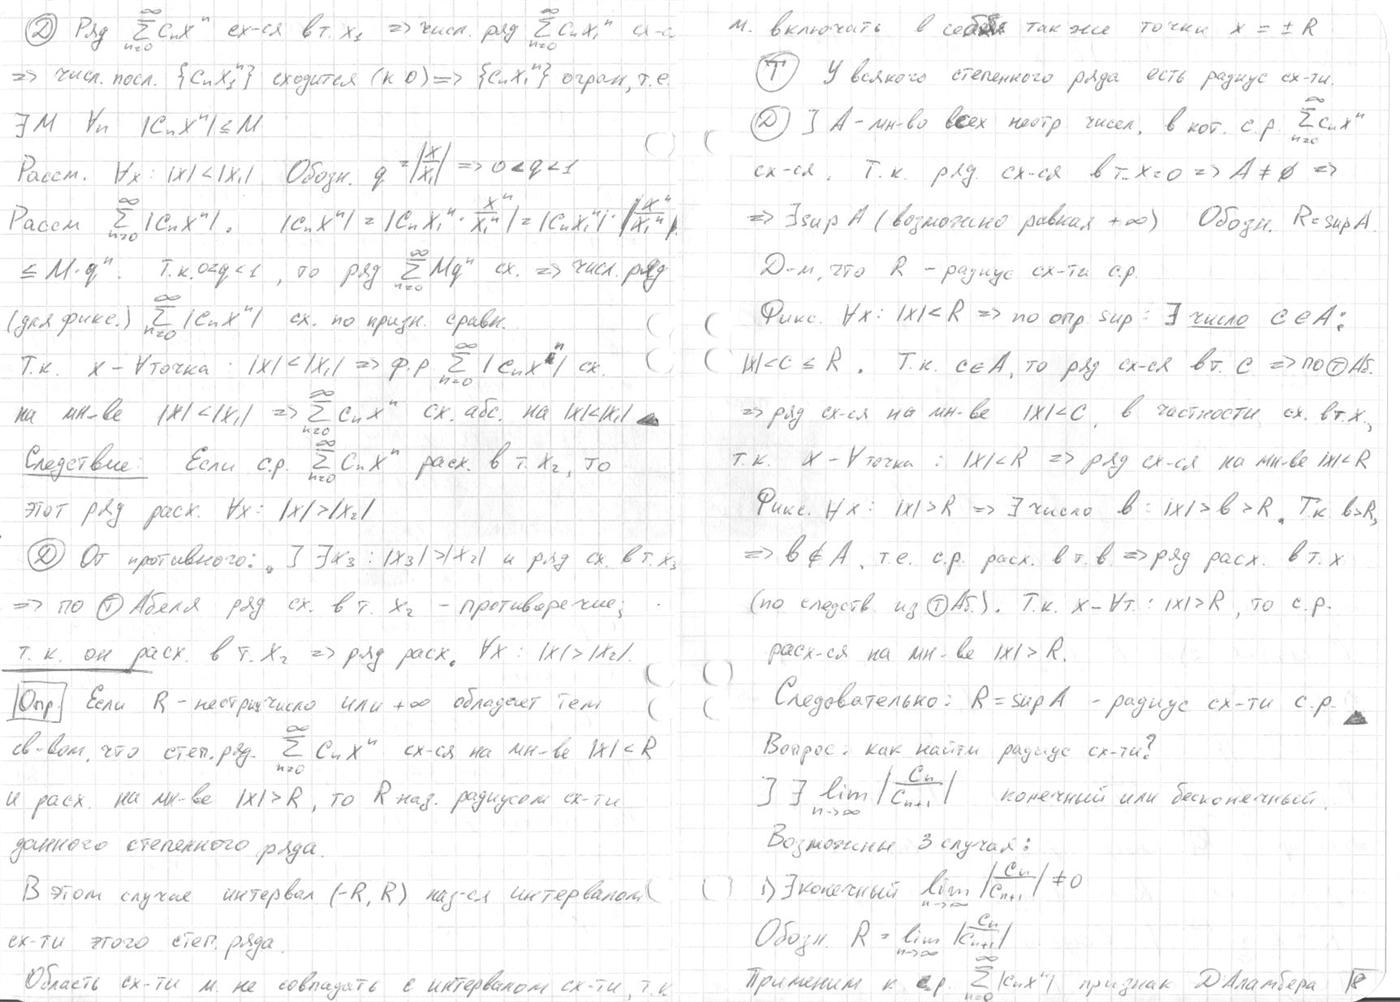 Д Ряд ∑_{n=0}^{∞} CnXⁿ сх-ся в т. X₁ => числ. ряд ∑_{n=0}^{∞} CnX₁ⁿ сх-с
=> числ. посл. {CnX₁ⁿ} сходится (к 0) => {CnX₁ⁿ} огран, т.е.
∃M ∀n |CnXⁿ| ≤ M
Рассм. ∀x: |x| < |X₁| Обозн. q = |X/X₁| => 0 < q < 1
Рассм ∑_{n=0}^{∞} |CnXⁿ|. |CnXⁿ| = |CnX₁ⁿ · Xⁿ/X₁ⁿ| = |CnX₁ⁿ| · |Xⁿ/X₁ⁿ|
≤ M·qⁿ. Т.к. 0<q<1, то ряд ∑_{n=0}^{∞} Mqⁿ сх. => числ. ряд
(для фикс.) ∑_{n=0}^{∞} |CnXⁿ| сх. по призн. сравн.
Т.к. x – ∀точка: |x| < |X₁| => ф.р ∑_{n=0}^{∞} |CnXⁿ| сх.
на мн-ве |x| < |X₁| => ∑_{n=0}^{∞} CnXⁿ сх. абс. на |x|<|X₁| ▲
Следствие: Если с.р. ∑_{n=0}^{∞} CnXⁿ расх. в т. X₂, то
этот ряд расх. ∀x: |x| > |X₂|
Д От противного: ] ∃X₃: |X₃| > |X₂| и ряд сх. в т. X₃
=> по Т Абеля ряд сх. в т. X₂ – противоречие;
т.к. он расх. в т. X₂ => ряд расх. ∀x: |x| > |X₂|.
Опр Если R – неотр. число или +∞ обладает тем
св-вом, что степ. ряд. ∑_{n=0}^{∞} CnXⁿ сх-ся на мн-ве |x| < R
и расх. на мн-ве |x| > R, то R наз. радиусом сх-ти
данного степенного ряда.
В этом случае интервал (-R, R) наз-ся интервалом
сх-ти этого степ. ряда.
Область сх-ти м. не совпадать с интервалом сх-ти, т.к.
м. включать в себя также точки x = ±R
Т У всякого степенного ряда есть радиус сх-ти.
Д ] A – мн-во всех неотр чисел, в кот. с.р. ∑_{n=0}^{∞} CnXⁿ
сх-ся. Т.к. ряд сх-ся в т. x=0 => A ≠ ∅ =>
=> ∃ sup A (возможно равная +∞) Обозн. R = sup A.
Д-м, что R – радиус сх-ти с.р.
Фикс. ∀x: |x| < R => по опр sup: ∃ число C ∈ A:
|x| < C ≤ R. Т.к. C ∈ A, то ряд сх-ся в т. C => по Т Аб.
=> ряд сх-ся на мн-ве |x| < C, в частности сх. в т. x.,
т.к. x – ∀точка: |x| < R => ряд сх-ся на мн-ве |x| < R
Фикс. ∀x: |x| > R => ∃ число b: |x| > b > R. Т.к b>R,
=> b ∉ A, т.е. с.р. расх. в т. b => ряд расх. в т. x
(по следств. из Т Аб.). Т.к. x – ∀т: |x| > R, то с.р.
расх-ся на мн-ве |x| > R.
Следовательно: R = sup A – радиус сх-ти с.р. ▲
Вопрос: как найти радиус сх-ти?
] ∃ lim_{n→∞} |Cn/Cn+1| конечный или бесконечный.
Возможны 3 случая:
1) ∃ конечный lim_{n→∞} |Cn/Cn+1| ≠ 0
Обозн. R = lim_{n→∞} |Cn/Cn+1|
Применим к с.р. ∑_{n=0}^{∞} |CnXⁿ| признак Д'Аламбера 18